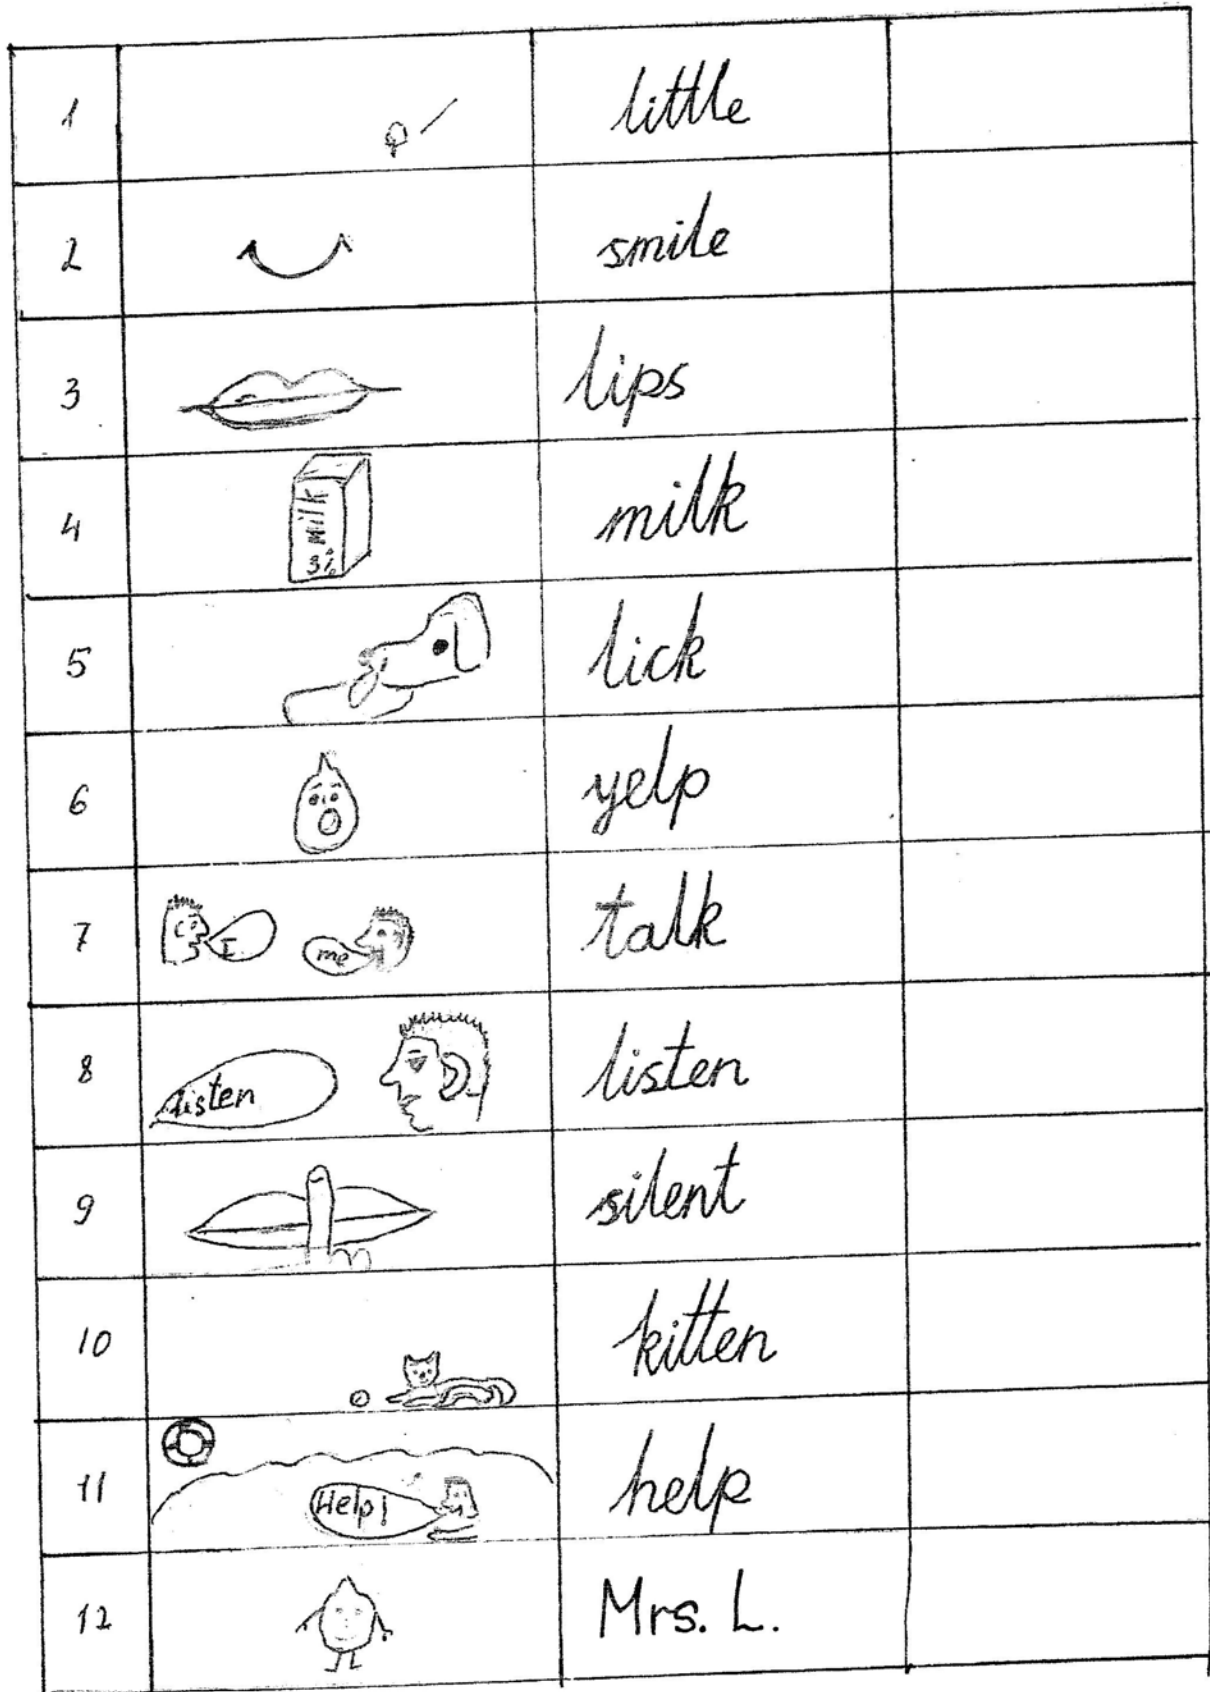 1 little
2 smile
3 lips
4 milk 3% milk
5 lick
6 yelp
7 I me talk
8 listen listen
9 silent
10 kitten
11 Help! help
12 Mrs. L.